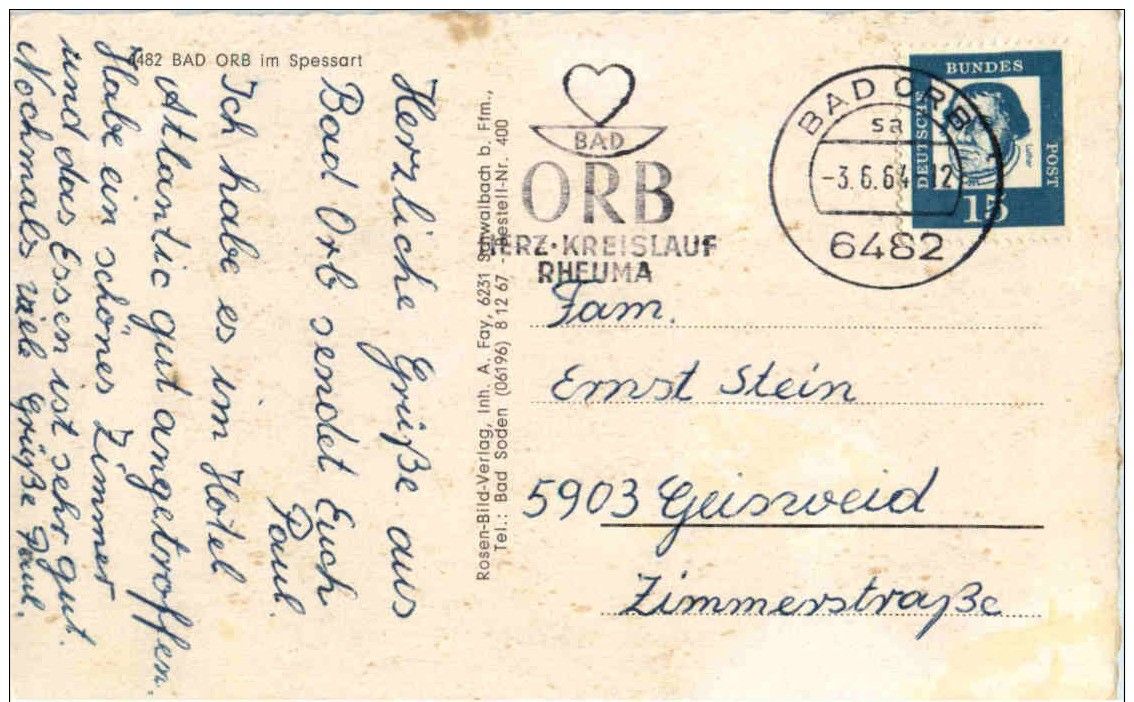 4482 BAD ORB im Spessart
Herzliche Grüße aus
Bad Orb sendet Euch
Paul.
Ich habe es im Hotel
Atlantic gut angetroffen
Habe ein schönes Zimmer
und das Essen ist sehr gut.
Nochmals viele Grüße Paul.
Rosen-Bild-Verlag, Inh. A. Fay, 6231 Schwalbach b. Ffm.,
Tel.: Bad Soden (06196) 81267 Bestell-Nr. 400
BAD
ORB
HERZ·KREISLAUF
RHEUMA
BAD ORB
sa
-3.6.64 12
6482
DEUTSCHE
BUNDES
POST
Luther
15
Fam.
Ernst Stein
5903 Geisweid
Zimmerstraße